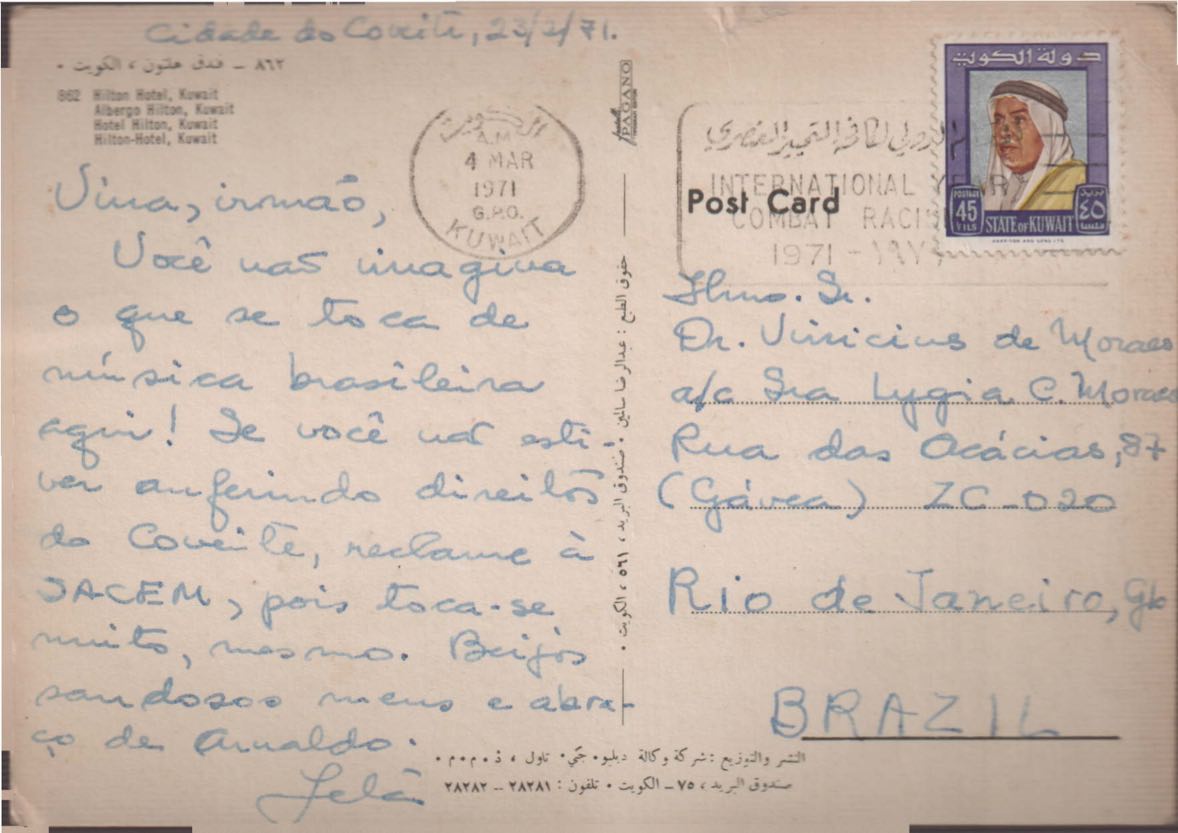 Cidade do Coveite, 23/2/71.
٨٦٢ – فندق هلتون ، الكويت •
862 Hilton Hotel, Kuwait
Albergo Hilton, Kuwait
Hotel Hilton, Kuwait
Hilton-Hotel, Kuwait
Vina, irmão,
Você não imagina
o que se toca de
música brasileira
aqui! Se você não esti-
ver auferindo direitos
do Coveite, reclame à
SACEM, pois toca-se
muito, mesmo. Beijos
saudosos meus e abra-
ço de Arnaldo.
الكويت
A.M.
4 MAR
1971
G.P.O.
KUWAIT
PAGANO
حقوق الطبع : عبدالرضا سالمين • صندوق البريد ، ٥٦١ ، الكويت •
لمكافحة التمييز العنصري
INTERNATIONAL YEAR
COMBAT RACIS
1971 – ١٩٧
Post Card
دولة الكويت
POSTAGE
45
FILS
STATE OF KUWAIT
بريد
٤٥
فلسا
HARRISON AND SONS LTD
Ilmo. Sr.
Dr. Vinicius de Moraes
a/c Sra Lygia C. Moraes
Rua das Acácias, 87
(Gávea) ZC-020
Rio de Janeiro, Gb
BRAZIL
النشر والتوزيع : شركة وكالة دبليو• جي• تاول ، ذ•م•م•
صندوق البريد ، ٧٥ – الكويت • تلفون : ٢٨٢٨١ – ٢٨٢٨٢